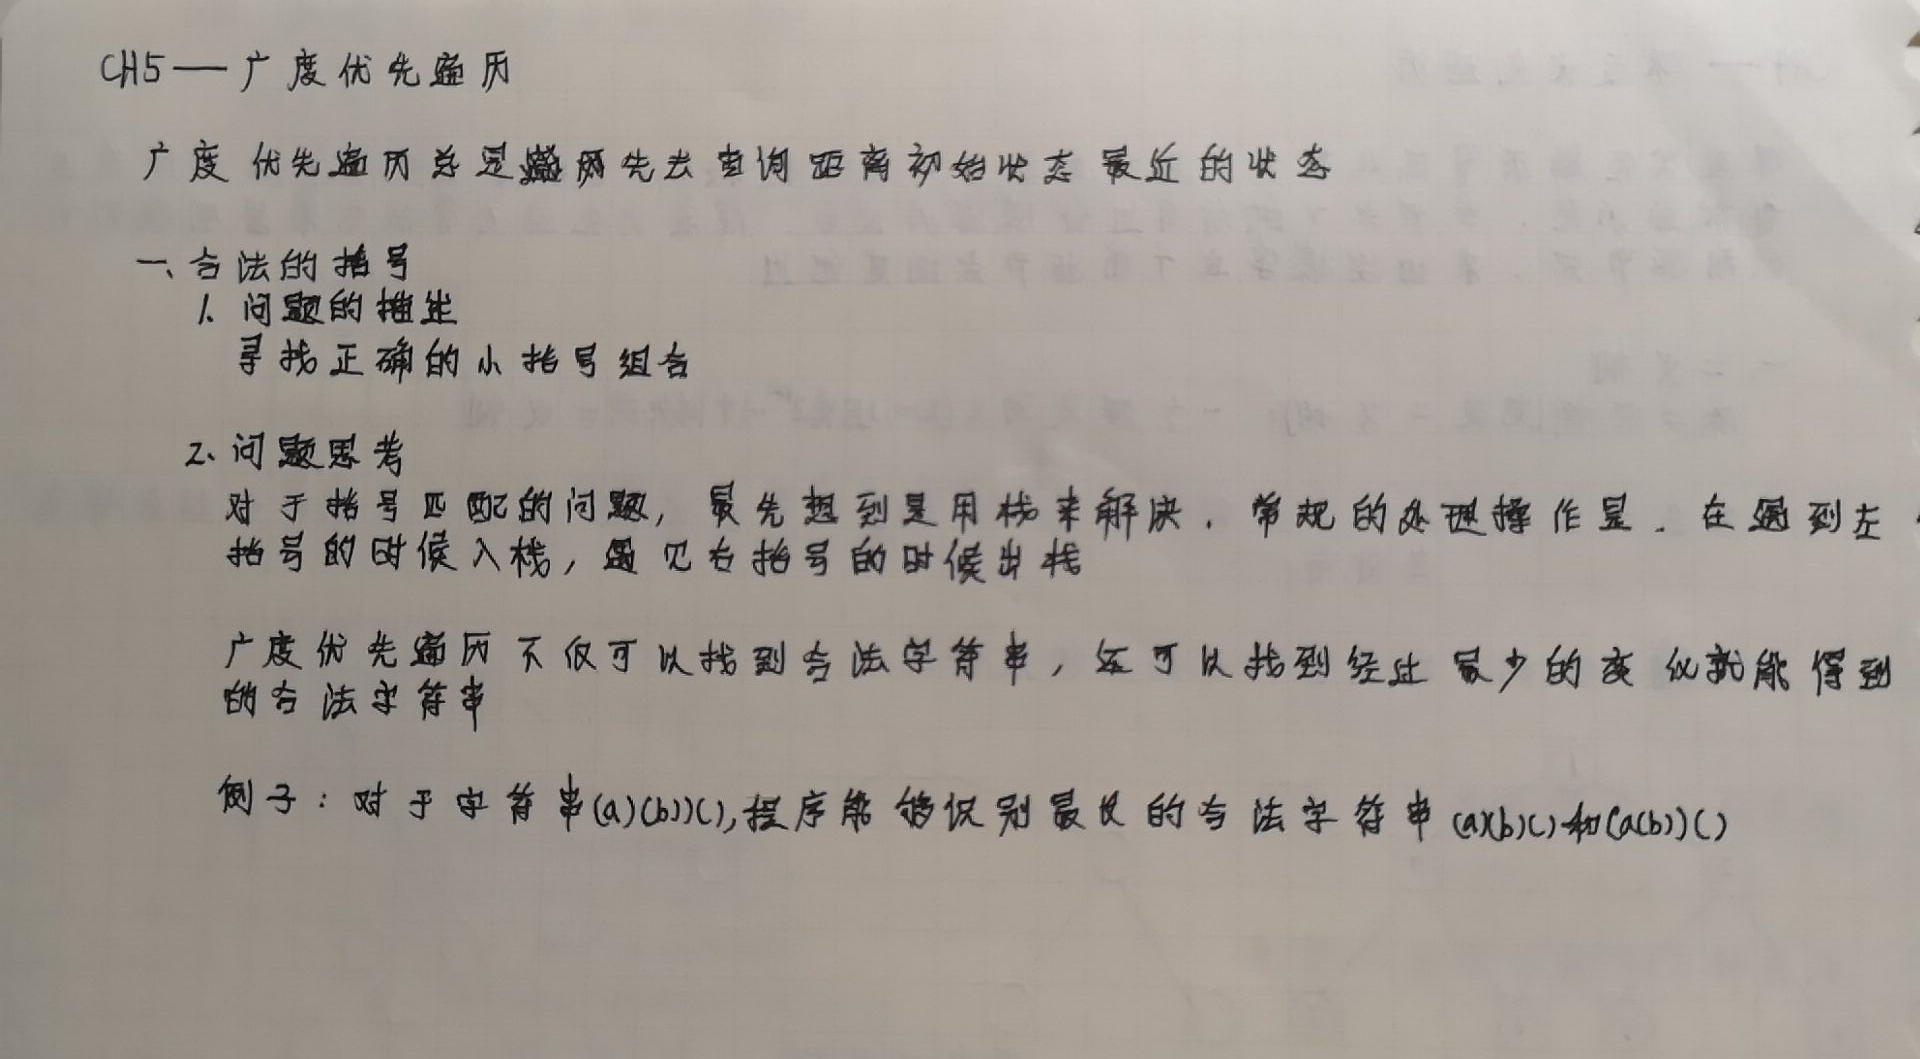 CH5——广度优先遍历
广度优先遍历总是先去查询距离初始状态最近的状态
一、合法的括号
1.问题的推出
寻找正确的小括号组合
2、问题思考
对于括号匹配的问题,最先想到是用栈来解决.常规的处理操作是.在遇到左
括号的时候入栈,遇见右括号的时候出栈
广度优先遍历不仅可以找到合法字符串,还可以找到经过最少的变化就能得到
的合法字符串
例子:对于字符串(a)(b))(),程序能够识别最长的合法字符串(a)(b)()和(a(b))()